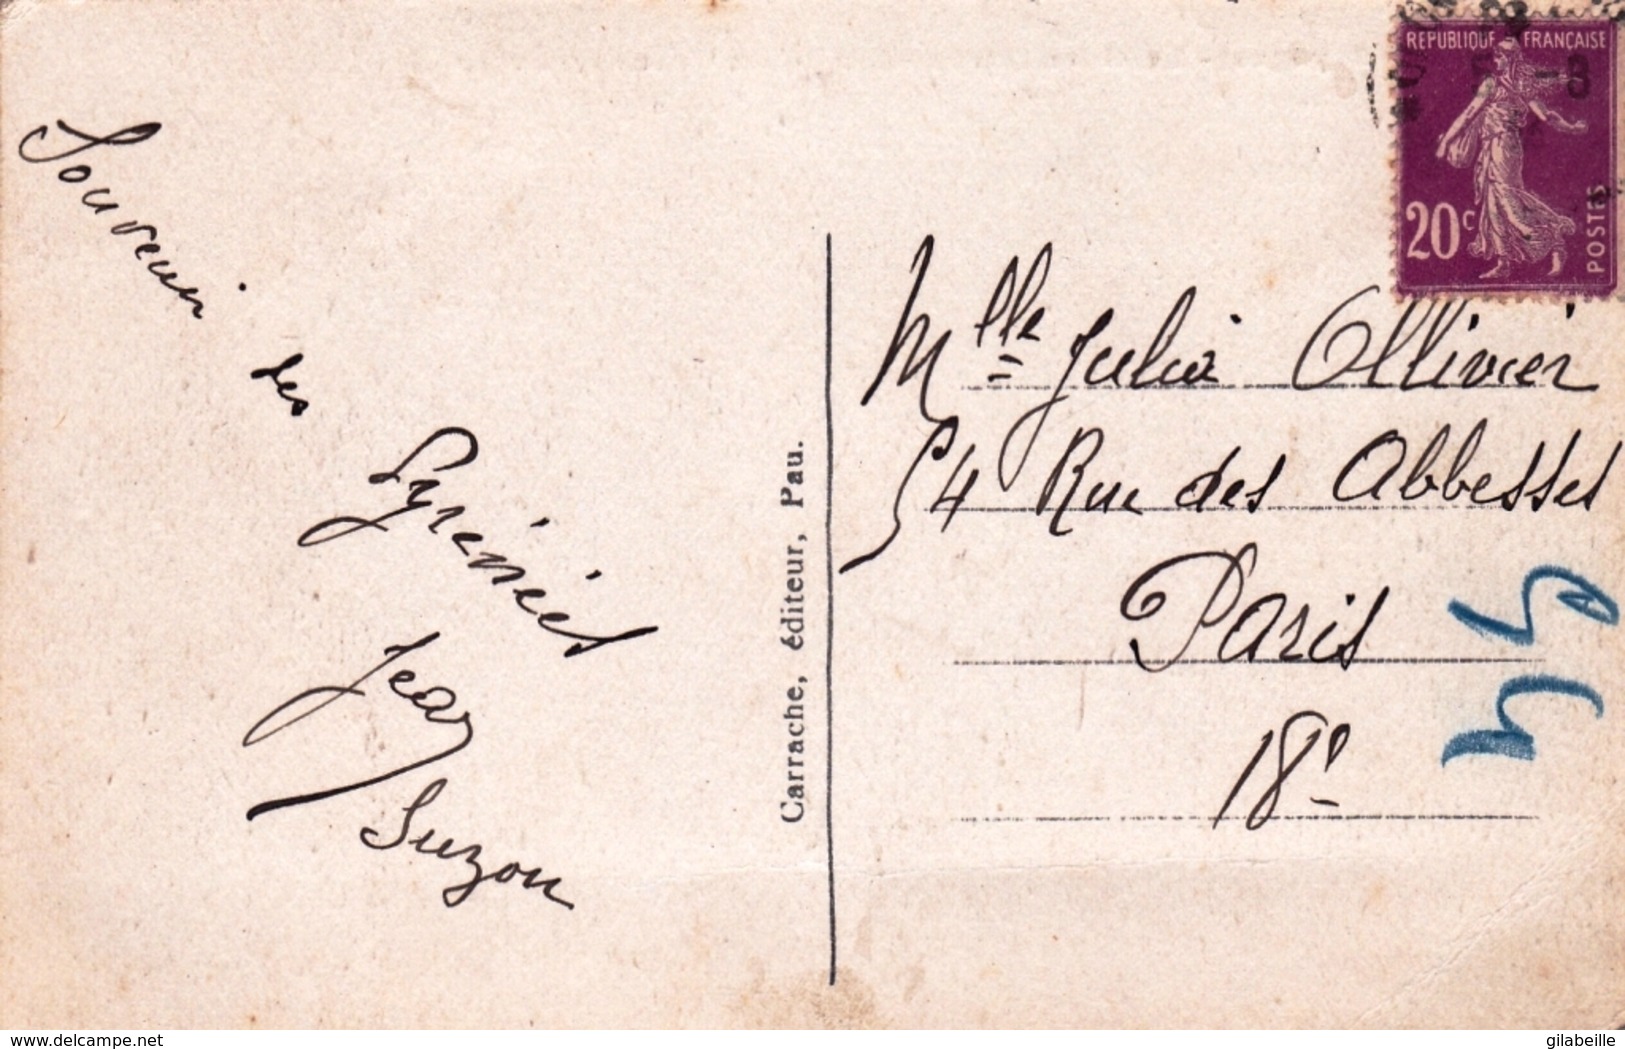 Souvenir
des
Pyrénées
Jean
Suzon
Carrache, éditeur, Pau.
REPUBLIQUE FRANÇAISE
20c
POSTES
Mlle Julia Ollivier
54 Rue des Abbesses
Paris
18e
54
www.delcampe.net
gilabeille